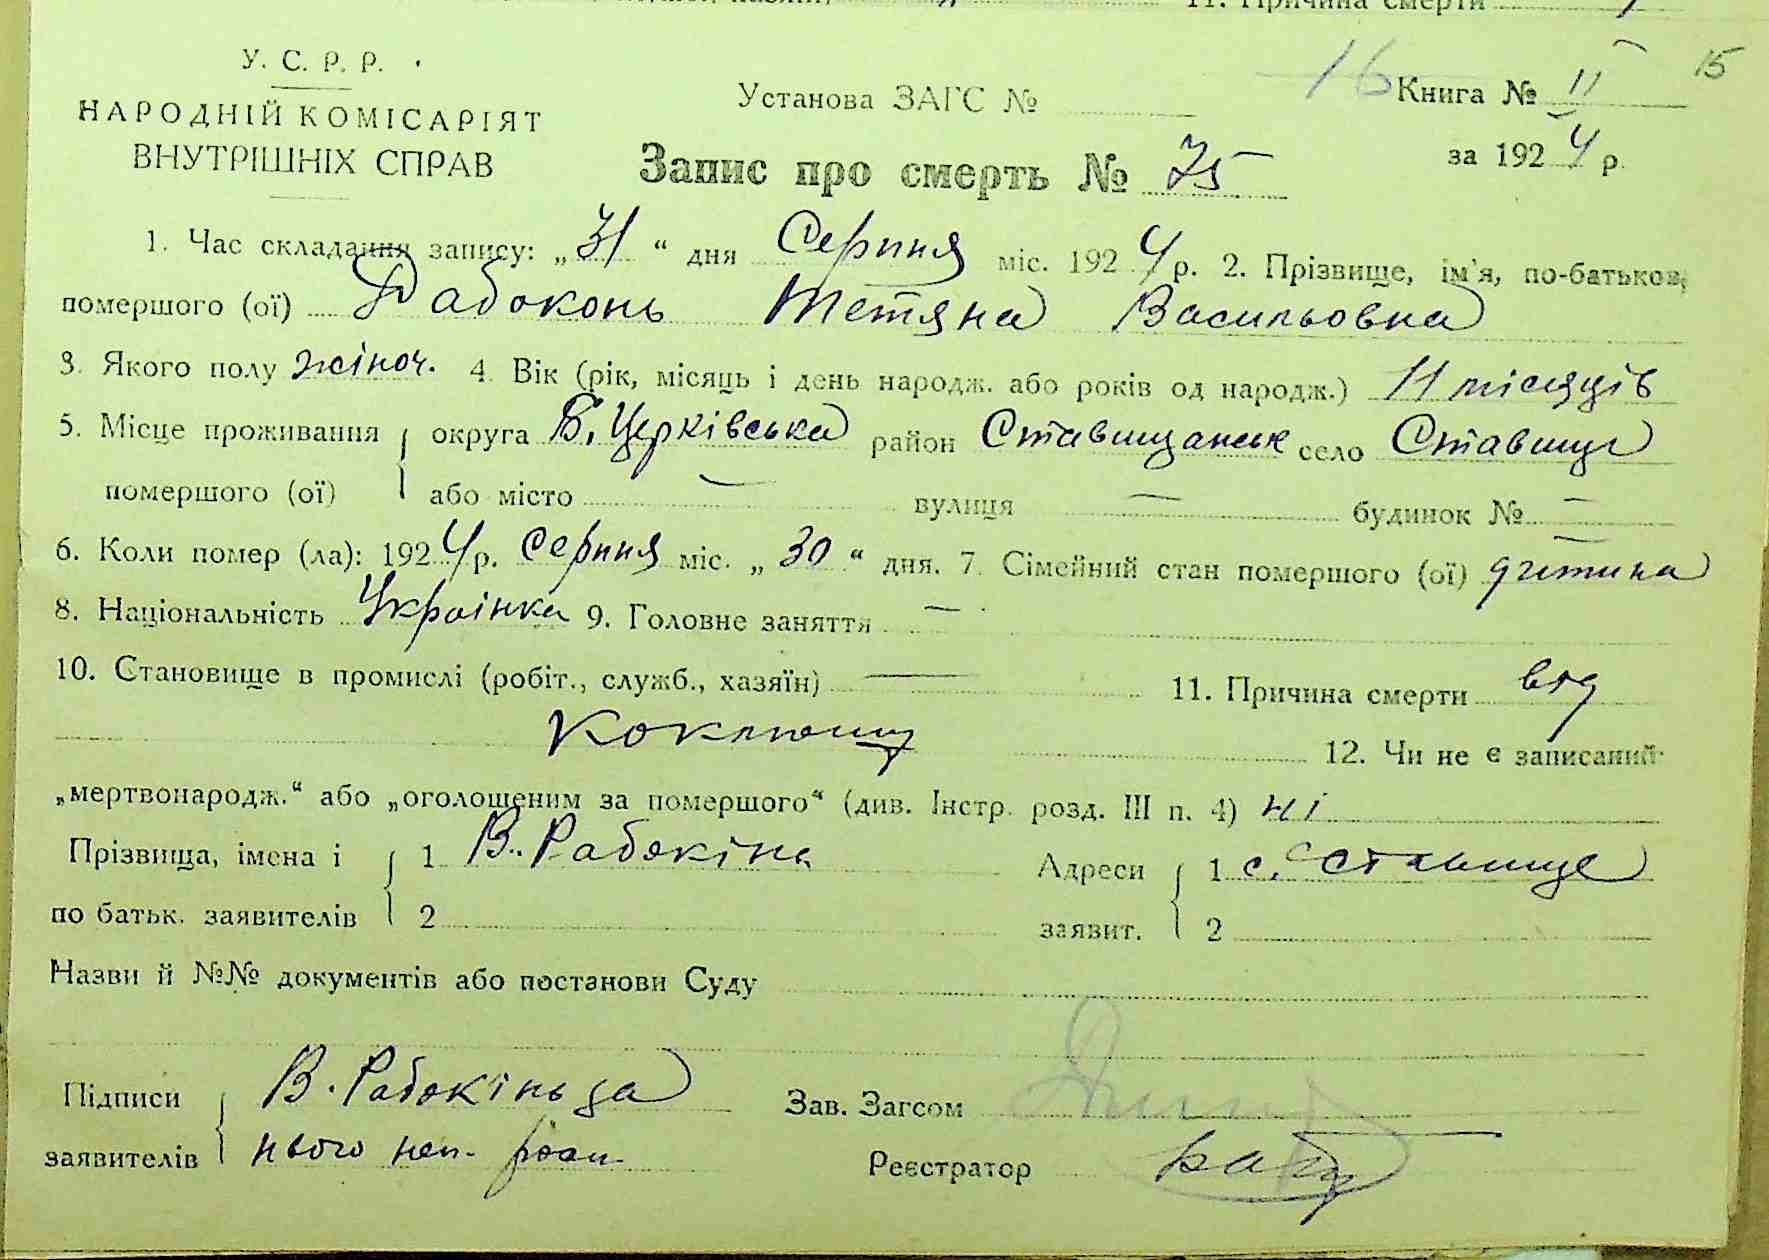 11. Причина смерти
У. С. Р. Р.
НАРОДНІЙ КОМІСАРІЯТ
ВНУТРІШНІХ СПРАВ
Установа ЗАГС №
16 Книга № II 15
за 1924 р.
Запис про смерть № 75
1. Час складання запису: „31“ дня Серпня міс. 1924 р. 2. Прізвище, ім'я, по-батькові,
помершого (ої) Рабоконь Тетяна Васильовна
3. Якого полу жіноч. 4. Вік (рік, місяць і день народж. або років од народж.) 11 місяців
5. Місце проживання округа Б. Церківська район Ставищанськ село Ставище
помершого (ої) або місто — вулиця — будинок № —
6. Коли помер (ла): 1924 р. Серпня міс. „30“ дня. 7. Сімейний стан помершого (ої) дитина
8. Національність Українка 9. Головне заняття —
10. Становище в промислі (робіт., служб., хазяїн) — 11. Причина смерти від
коклюшу 12. Чи не є записаний
„мертвонародж.“ або „оголошеним за помершого“ (див. Інстр. розд. III п. 4) ні
Прізвища, імена і 1 В. Рабокінь Адреси 1 с. Ставище
по батьк. заявителів 2 заявит. 2
Назви й №№ документів або постанови Суду
Підписи В. Рабокінь за Зав. Загсом
заявителів нього неп. Реєстратор